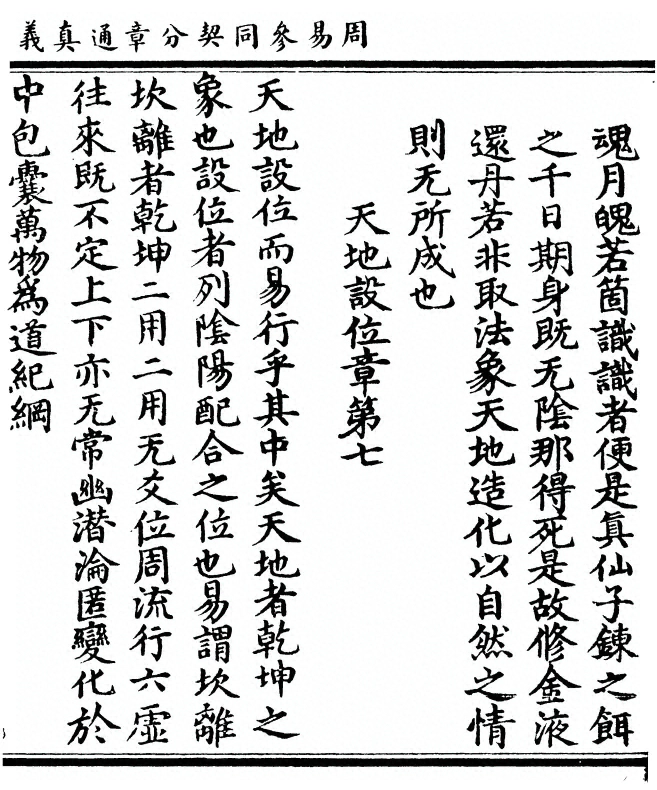 周易參同契分章通真義
魂月魄若箇識識者便是真仙子鍊之餌
之千日期身既无陰那得死是故修金液
還丹若非取法象天地造化以自然之情
則无所成也
天地設位章第七
天地設位而易行乎其中矣天地者乾坤之
象也設位者列陰陽配合之位也易謂坎離
坎離者乾坤二用二用无爻位周流行六虛
往來既不定上下亦无常幽潜淪匿變化於
中包囊萬物為道紀綱